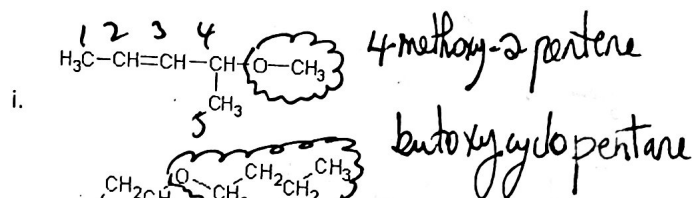 1 2 3 4
H₃C—CH=CH—CH—O—CH₃ 4-methoxy-2 pentene
i.
CH₃
5
butoxycyclopentane
O CH₂ CH₃
CH₂ CH CH₂ CH₂